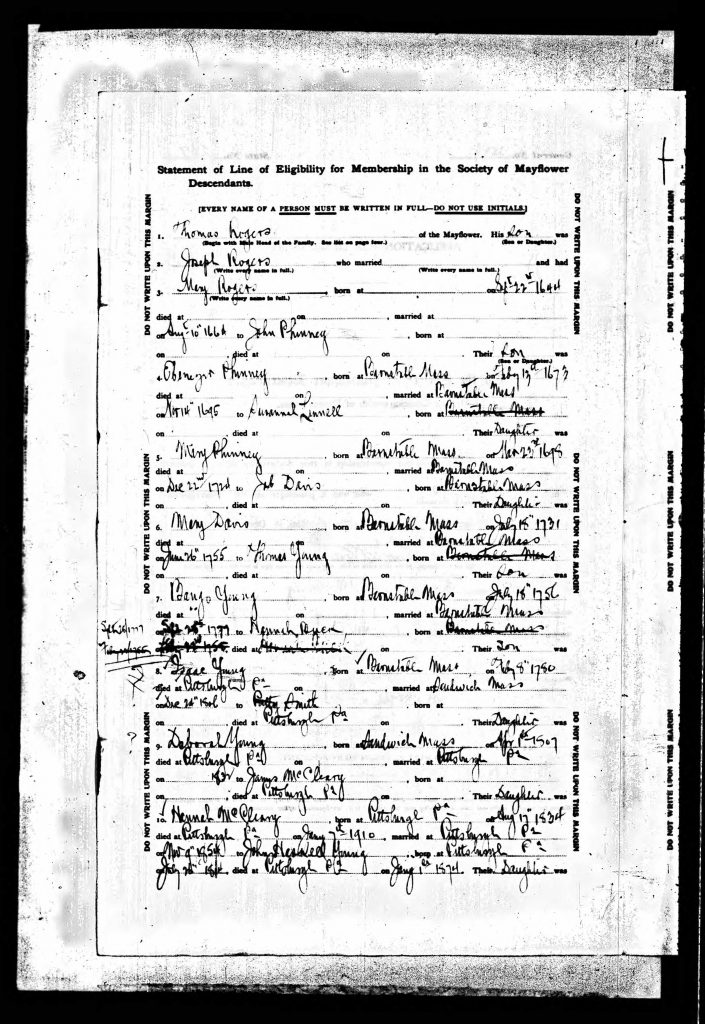 Statement of Line of Eligibility for Membership in the Society of Mayflower
Descendants.
[EVERY NAME OF A PERSON MUST BE WRITTEN IN FULL—DO NOT USE INITIALS.]
DO NOT WRITE UPON THIS MARGIN
DO NOT WRITE UPON THIS MARGIN
1. Thomas Rogers of the Mayflower. His Son was
(Begin with Male Head of the Family. See list on page four.) (Son or Daughter.)
2. Joseph Rogers who married and had
(Write every name in full.) (Write every name in full.)
3. Mary Rogers, born at on Sept 22nd 1644
(Write every name in full.)
died at on, married at
on Aug 10th 1664 to John Phinney, born at
on, died at on. Their Son was
(Son or Daughter.)
4. Ebenezer Phinney, born at Barnstable Mass on Feby 13th 1673
died at on, married at Barnstable Mass
on Nov 14th 1695 to Susannah Linnell, born at Barnstable Mass
on, died at on. Their Daughter was
5. Mary Phinney, born at Barnstable Mass. on Mar 23rd 1698
died at on, married at Barnstable Mass
on Dec 22nd 1724 to Job Davis, born at Barnstable Mass
on, died at on. Their Daughter was
DO NOT WRITE UPON THIS MARGIN
DO NOT WRITE UPON THIS MARGIN
6. Mary Davis, born at Barnstable Mass on July 18th 1731
died at on, married at Barnstable Mass
on June 26th 1755 to Thomas Young, born at Barnstable Mass
on, died at on. Their Son was
7. Bangs Young, born at Barnstable Mass July 18th 1756
died at on, married at Barnstable Mass
1777 Hannah, born at Barnstable Mass
on, died at on. Their Son was
8. Isaac Young, born at Barnstable Mass on Feby 8th 1780
died at Pittsburgh Pa, married at Sandwich Mass
on Dec 24th 1806 to Betty Smith, born at
on, died at Pittsburgh Pa on. Their Daughter was
?
9. Deborah Young, born at Sandwich Mass on Apr 1st 1807
died at Pittsburgh Pa on, married at Pittsburgh Pa
on to James McCleary, born at
on, died at Pittsburgh Pa on. Their Daughter was
DO NOT WRITE UPON THIS MARGIN
DO NOT WRITE UPON THIS MARGIN
10. Hannah McCleary, born at Pittsburgh Pa on Aug 17th 1834
died at Pittsburgh Pa on Jany 7th 1910, married at Pittsburgh Pa
on Nov 9th 1854 to John Young, born at Pittsburgh Pa
on died at Pittsburgh Pa on Jany 1st 1874. Their Daughter was